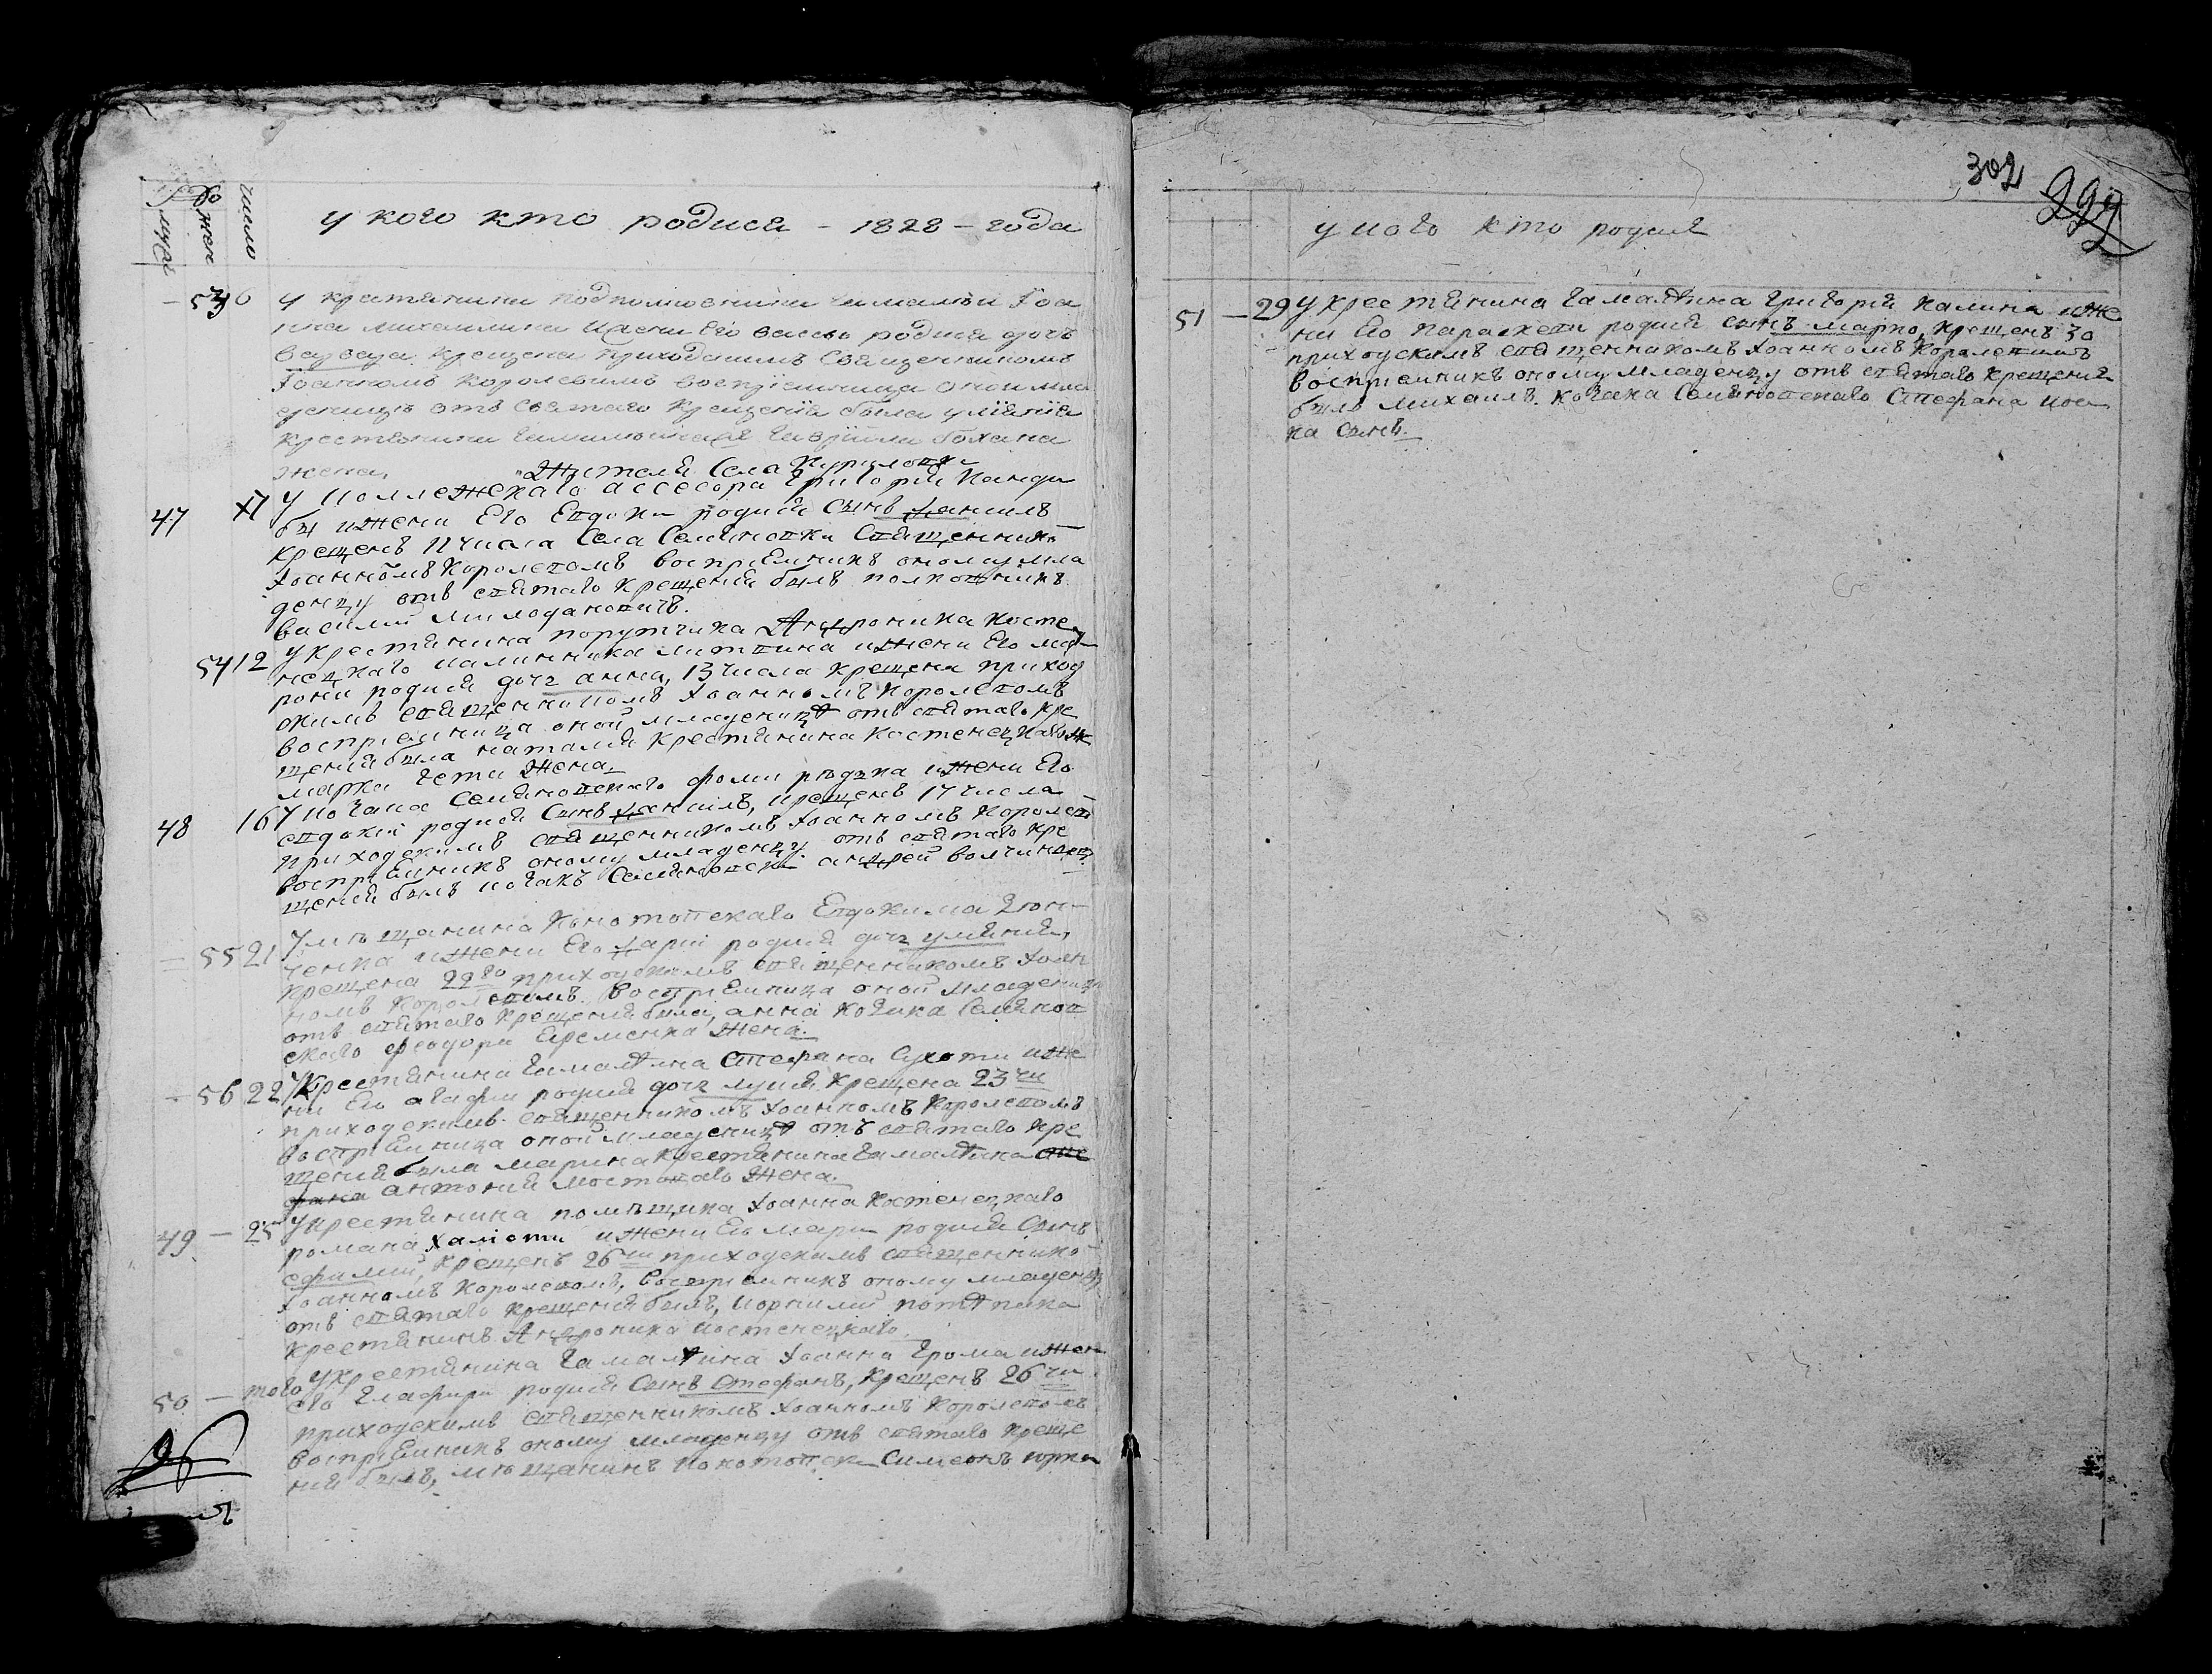 число
у кого кто родися - 1828 - года
- 53 6 у крестянина подполковника Гамалѣи Іоа
нна Михаилина и жени Его родися дочь
крещена приходскимъ Священникомъ
Іоанномъ Королевимъ воспріемница оной мла
денице отъ Святаго Крещенія была Уліянія
крестянина Гавріила
жена.
Жителя Села
47 11 У Коллежскаго ассесора Григорія Канди
бы и жени Его Евдокіи родися Сынъ Даніилъ
крещенъ 11 числа Села Семяновки Священнико
Іоанномъ Королевомъ воспріемникъ оному мла
денцу отъ святаго крещенія былъ полковникъ
василій милодановичъ.
У крестянина порутчика Андроника Косте
54 12 нецкаго калинника литвина и жени Его мат
рони родися дочь анна, 13 числа крещена приход
скимъ священникомъ Іоанномъ Королевомъ
воспріемница оной младеницѣ отъ святаго кре
щенія была наталія крестянина Костенецкаго
марка жена.
48 16 У козака Семяновскаго фоми редка и жени Его
евдокіи родися Сынъ Даніилъ, крещенъ 17 числа
приходскимъ священникомъ Іоанномъ Королев
воспріемникъ оному младенцу отъ святаго кре
щенія былъ козакъ Семяновски андрей волчинец
= 55 21 У мѣщанина Конотопскаго Евдокима
ченка и жени Его Даріи родися дочь уліянія,
крещена 22го приходскимъ священникомъ Іоан
номъ Королевомъ. воспріемница оной младениц
отъ святаго крещенія была, анна козака Семянов
скаго феодора Еременка жена.
- 56 22 У крестянина Гамалѣина Стефана Сухоти и же
ни Его агафіи родися дочь лукія, крещена 23 чи
приходскимъ священникомъ Іоанномъ Королевомъ
воспріемница оной младеницѣ отъ святаго кре
щенія была марина крестянина Гамалѣина сте
фана антонія мостоваго жена.
49 - 25 У крестянина помѣщика Іоанна Костенецкаго
романа и жени Его маріи родися Сынъ
ефимій, крещенъ 26 чи приходскимъ священнико
Іоанномъ Королевомъ, воспріемникъ оному младенц
отъ святаго крещенія былъ, корнилій
крестянинъ Андроника Костенецкаго.
50 - того У крестянина Гамалѣина Іоанна Грома и жен
его Глафири родися Сынъ Стефанъ, крещенъ 26 чи
приходскимъ священникомъ Іоанномъ Королевомъ
воспріемникъ оному младенцу отъ святаго креще
нія былъ, мѣщанинъ Конотопски Симеонъ
302
299
у кого кто родися
51 - 29 У крестянина Гамалѣина Григорія Калина и же
ни Его параскеви родися сынъ марко, крещенъ 30
приходскимъ священникомъ Іоанномъ Королевимъ
воспріемникъ оному младенцу отъ святаго крещенія
былъ михаилъ козака Семяновскаго Стефана
ка сынъ.